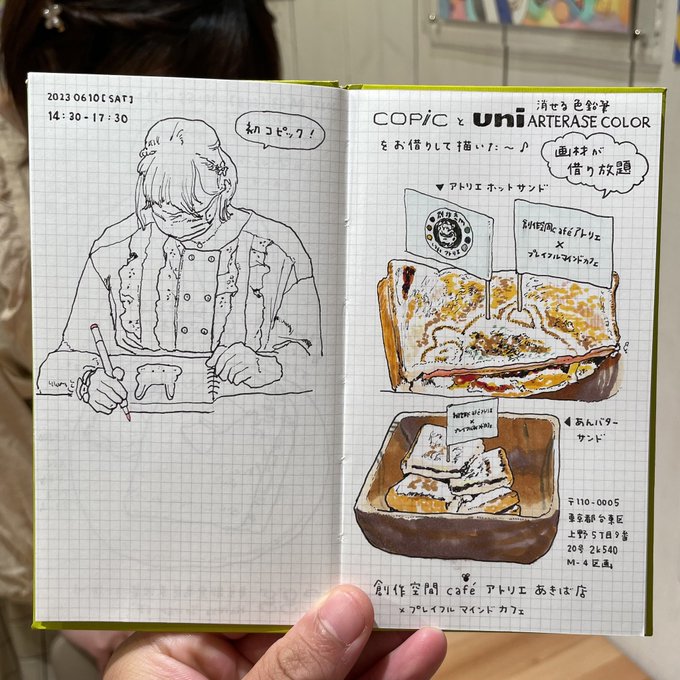 2023 06 10 [SAT]
14:30-17:30
初コピック!
消せる色鉛筆
COPiC と uni ARTERASE COLOR
をお借りして描いた〜♪
画材が
借り放題
▼アトリエホットサンド
創作空間café アトリエ
×
プレイフルマインドカフェ
創作空間café アトリエ
×
プレイフルマインドカフェ
◀あんバター
サンド
〒110-0005
東京都台東区
上野5丁目9番
20号 2k540
M-4区画
創作空間 café アトリエ あきば店
×プレイフルマインドカフェ